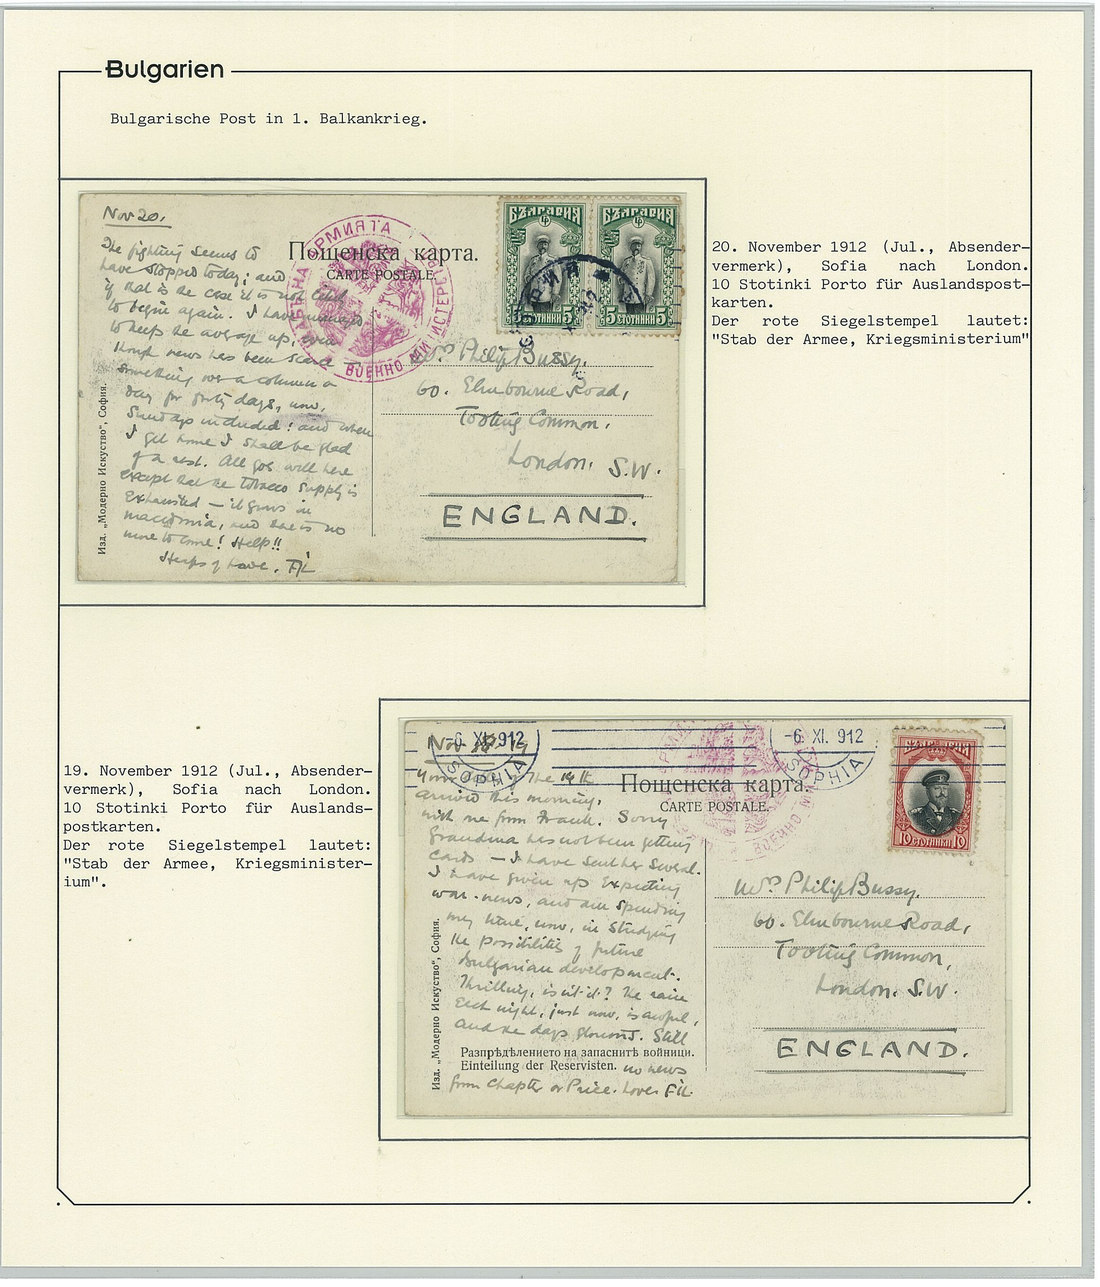 Bulgarien
Bulgarische Post in 1. Balkankrieg.
Nov 20.
The fighting seems to
have stopped today; and
if that is the case it is not
to begin again. I have managed
to keep the average up, even
though news has been scarce
something over a column a
day for forty days, now,
Sundays included: and when
I get home I shall be glad
of a rest. All goes well here
except that the tobacco supply is
exhausted — it grows in
Macedonia, and there is no
more to come! Help!!
Heaps of love. FiL
Изд. „Модерно Искуство“, София.
Пощенска карта.
CARTE POSTALE.
ЩАБЪ НА АРМИЯТА
ВОЕННО МИНИСТЕРСТВО
БЪЛГАРИЯ
5 СТОТИНКИ 5
БЪЛГАРИЯ
5 СТОТИНКИ 5
Mrs. Philip Bussy,
60. Elmbourne Road,
Tooting Common,
London. S.W.
ENGLAND.
20. November 1912 (Jul., Absender-
vermerk), Sofia nach London.
10 Stotinki Porto für Auslandspost-
karten.
Der rote Siegelstempel lautet:
"Stab der Armee, Kriegsministerium"
19. November 1912 (Jul., Absender-
vermerk), Sofia nach London.
10 Stotinki Porto für Auslands-
postkarten.
Der rote Siegelstempel lautet:
"Stab der Armee, Kriegsminister-
ium".
-6 XI. 912
SOPHIA
-6 XI. 912
SOPHIA
Nov 19
the 14th
arrived this morning,
with one from Frank. Sorry
Grandma has not been getting
cards — I have sent her several.
I have given up expecting
war-news, and am spending
my time, now, in studying
the possibilities of future
Bulgarian development.
Thrilling, isn't it? The rain
each night, just now, is awful,
and the days glorious. Still
Разпрѣдѣлението на запаснитѣ войници.
Einteilung der Reservisten.
no news
from Chapter or Price. Love. FiL
Изд. „Модерно Искуство“, София.
Пощенска карта.
CARTE POSTALE.
БЪЛГАРИЯ
10 СТОТИНКИ 10
Mrs. Philip Bussy,
60. Elmbourne Road,
Tooting Common,
London. S.W.
ENGLAND.